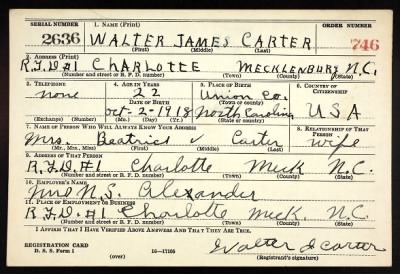 SERIAL NUMBER 1. NAME (Print) ORDER NUMBER
2636 WALTER JAMES CARTER 746
(First) (Middle) (Last)
2. ADDRESS (Print)
R.F.D.#1 CHARLOTTE MECKLENBURG N.C.
(Number and street or R. F. D. number) (Town) (County) (State)
3. TELEPHONE 4. AGE IN YEARS 5. PLACE OF BIRTH 6. COUNTRY OF CITIZENSHIP
none 22 Union Co.
DATE OF BIRTH (Town or county)
Oct-2-1918 North Carolina USA
(Exchange) (Number) (Mo.) (Day) (Yr.) (State or country)
7. NAME OF PERSON WHO WILL ALWAYS KNOW YOUR ADDRESS 8. RELATIONSHIP OF THAT PERSON
Mrs. Beatrice v Carter wife
(Mr., Mrs., Miss) (First) (Middle) (Last)
9. ADDRESS OF THAT PERSON
R.F.D.#1 Charlotte Meck N.C.
(Number and street or R. F. D. number) (Town) (County) (State)
10. EMPLOYER'S NAME
N.S. Alexander
11. PLACE OF EMPLOYMENT OR BUSINESS
R.F.D.#1 Charlotte Meck. N.C.
(Number and street or R. F. D. number) (Town) (County) (State)
I AFFIRM THAT I HAVE VERIFIED ABOVE ANSWERS AND THAT THEY ARE TRUE.
REGISTRATION CARD
D. S. S. Form 1 16—17105 Walter J Carter
(Registrant's signature)